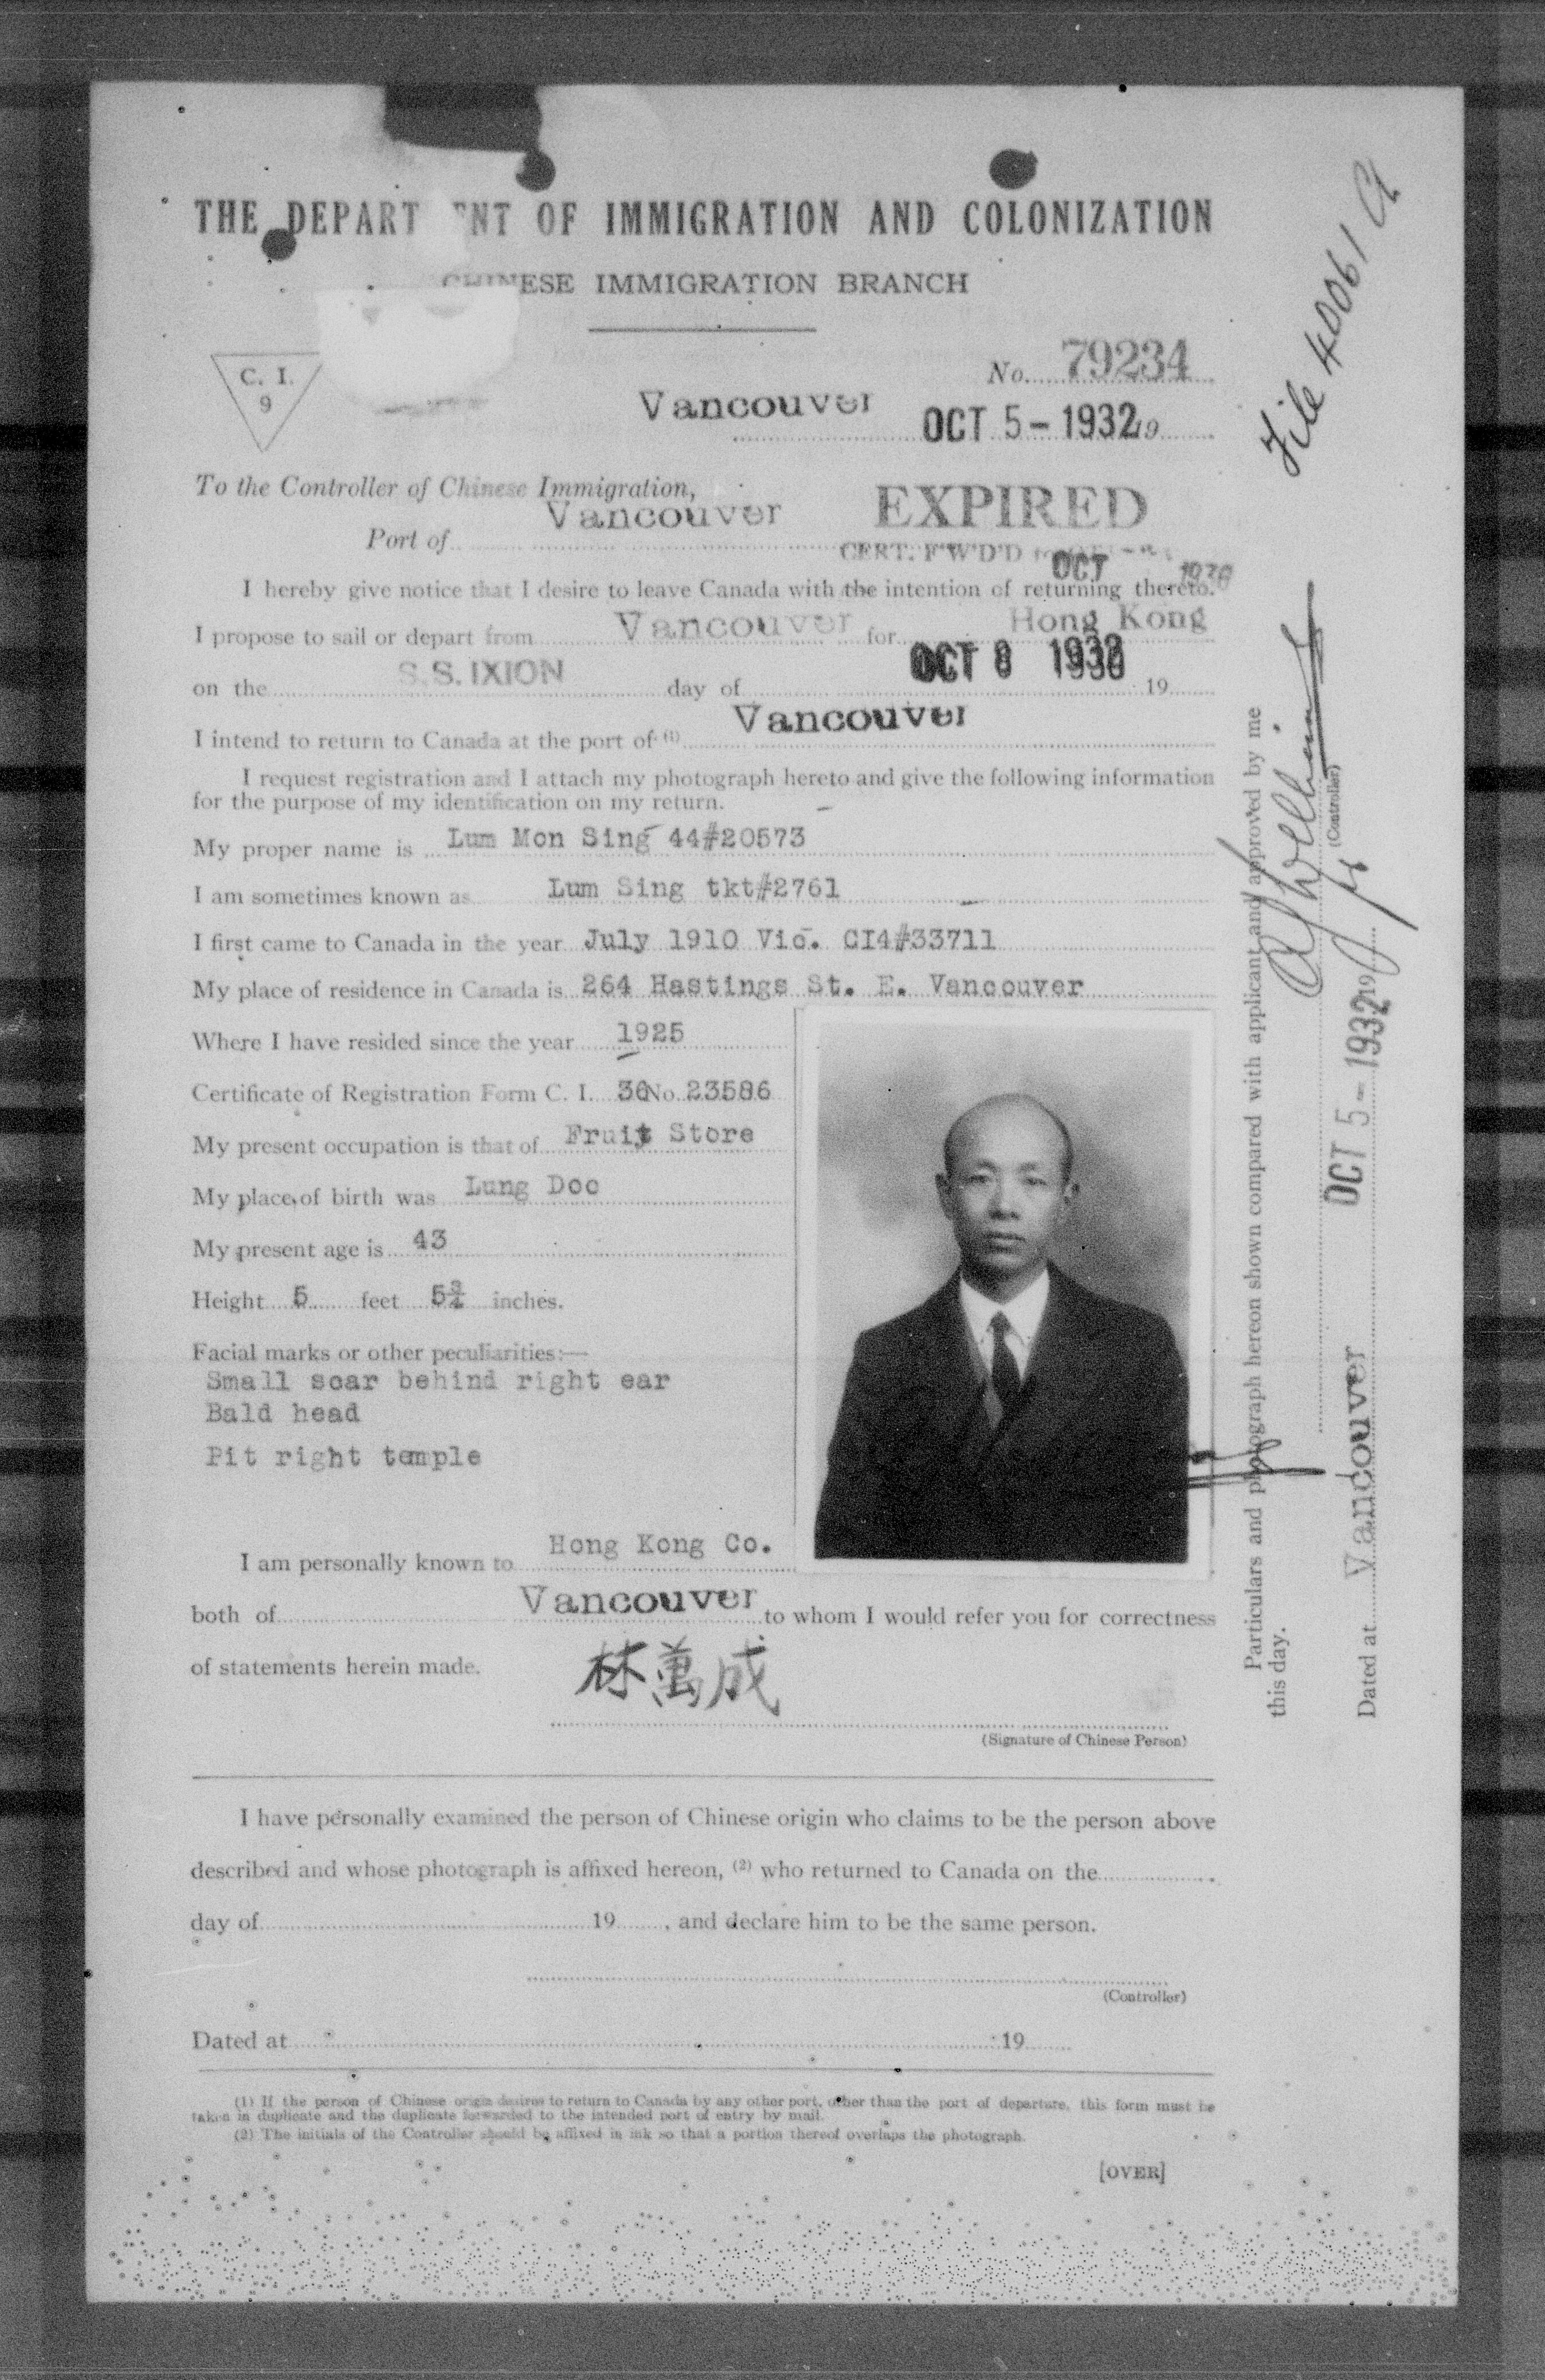 THE DEPART ENT OF IMMIGRATION AND COLONIZATION
CHINESE IMMIGRATION BRANCH
C. I.
9
No. 79234
Vancouver OCT 5 - 1932 19
File 40061
To the Controller of Chinese Immigration,
Port of Vancouver
EXPIRED
CERT. F'W'D'D
OCT
I hereby give notice that I desire to leave Canada with the intention of returning thereto.
I propose to sail or depart from Vancouver for Hong Kong
on the S.S. IXION day of OCT 8 19
I intend to return to Canada at the port of (1) Vancouver
I request registration and I attach my photograph hereto and give the following information
for the purpose of my identification on my return.
My proper name is Lum Mon Sing 44#20573
I am sometimes known as Lum Sing tkt#2761
I first came to Canada in the year July 1910 Vic. CI4#33711
My place of residence in Canada is 264 Hastings St. E. Vancouver
Where I have resided since the year 1925
Certificate of Registration Form C. I. 36 No. 23586
My present occupation is that of Fruit Store
My place of birth was Lung Doo
My present age is 43
Height 5 feet 5¾ inches.
Facial marks or other peculiarities:—
Small scar behind right ear
Bald head
Pit right temple
I am personally known to Hong Kong Co.
both of Vancouver to whom I would refer you for correctness
of statements herein made.
林萬成
(Signature of Chinese Person)
I have personally examined the person of Chinese origin who claims to be the person above
described and whose photograph is affixed hereon, (2) who returned to Canada on the
day of 19 , and declare him to be the same person.
(Controller)
Dated at 19
(1) If the person of Chinese origin desires to return to Canada by any other port, other than the port of departure, this form must be
taken in duplicate and the duplicate forwarded to the intended port of entry by mail.
(2) The initials of the Controller should be affixed in ink so that a portion thereof overlaps the photograph.
[OVER]
Particulars and photograph hereon shown compared with applicant and approved by me
this day.
(Controller)
Dated at Vancouver OCT 5 - 1932 19